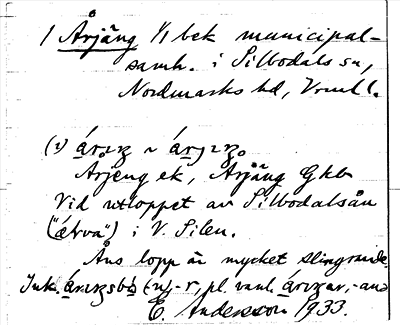 1 Årjäng 1/1 bek municipal-
samh. i Silbodals sn,
Nordmarks hd, Vrml l.
(1) árɪŋ ~ árjɪŋ.
Årjeng ek, Årjäng Gkb
Vid utloppet av Silbodalsån
("åkva") i V. Silen.
Åns lopp är mycket slingrande.
Ink. -r, pl. vanl.
E. Andersson 1933.